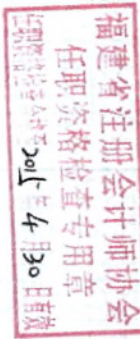 福建省注册会计师协会
任职资格检查专用章
2015年4月30日有效